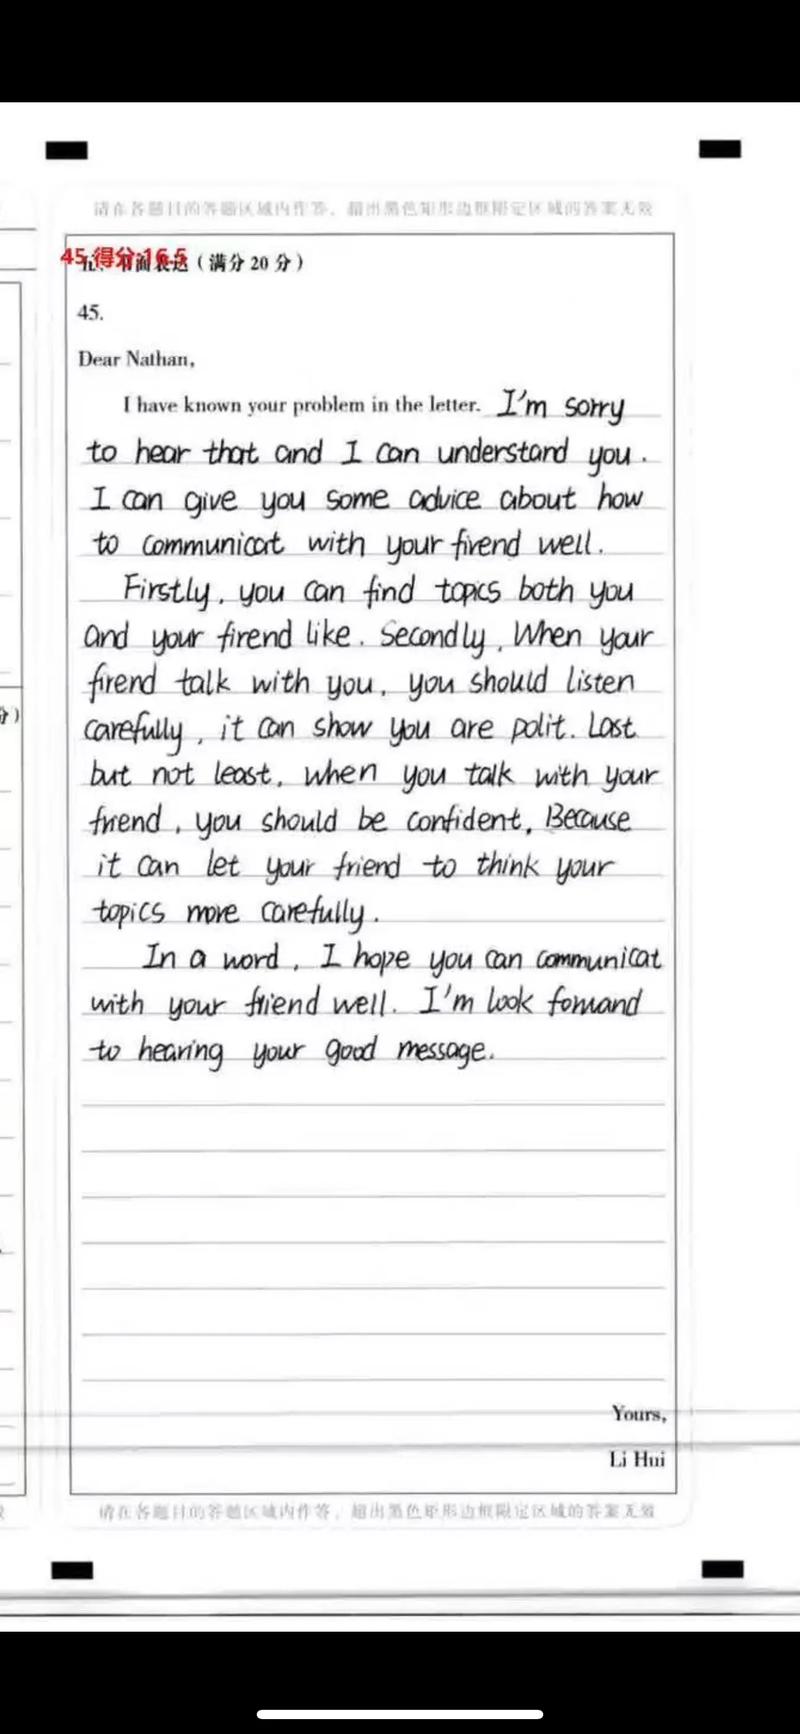 请在各题目的答题区域内作答，超出黑色矩形边框限定区域的答案无效
45.得分:16.5
五、书面表达（满分20分）
45.
Dear Nathan,
I have known your problem in the letter. I'm sorry
to hear that and I can understand you.
I can give you some advice about how
to communicat with your firend well.
Firstly, you can find topics both you
and your firend like. Secondly, When your
firend talk with you, you should listen
carefully, it can show you are polit. Last
but not least, when you talk with your
friend, you should be confident, Because
it can let your friend to think your
topics more carefully.
In a word, I hope you can communicat
with your friend well. I'm look forward
to hearing your good message.
Yours,
Li Hui
请在各题目的答题区域内作答，超出黑色矩形边框限定区域的答案无效
分）